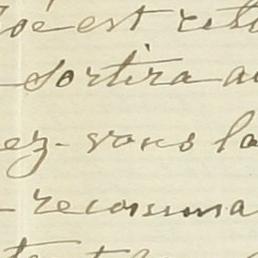 est ret
sortira a
ez-vous la
recomma